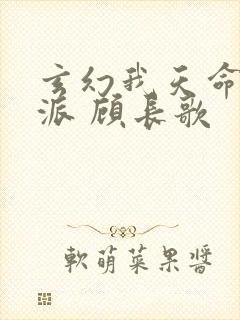 玄幻我天命
派 顾长歌
軟萌菜果醬